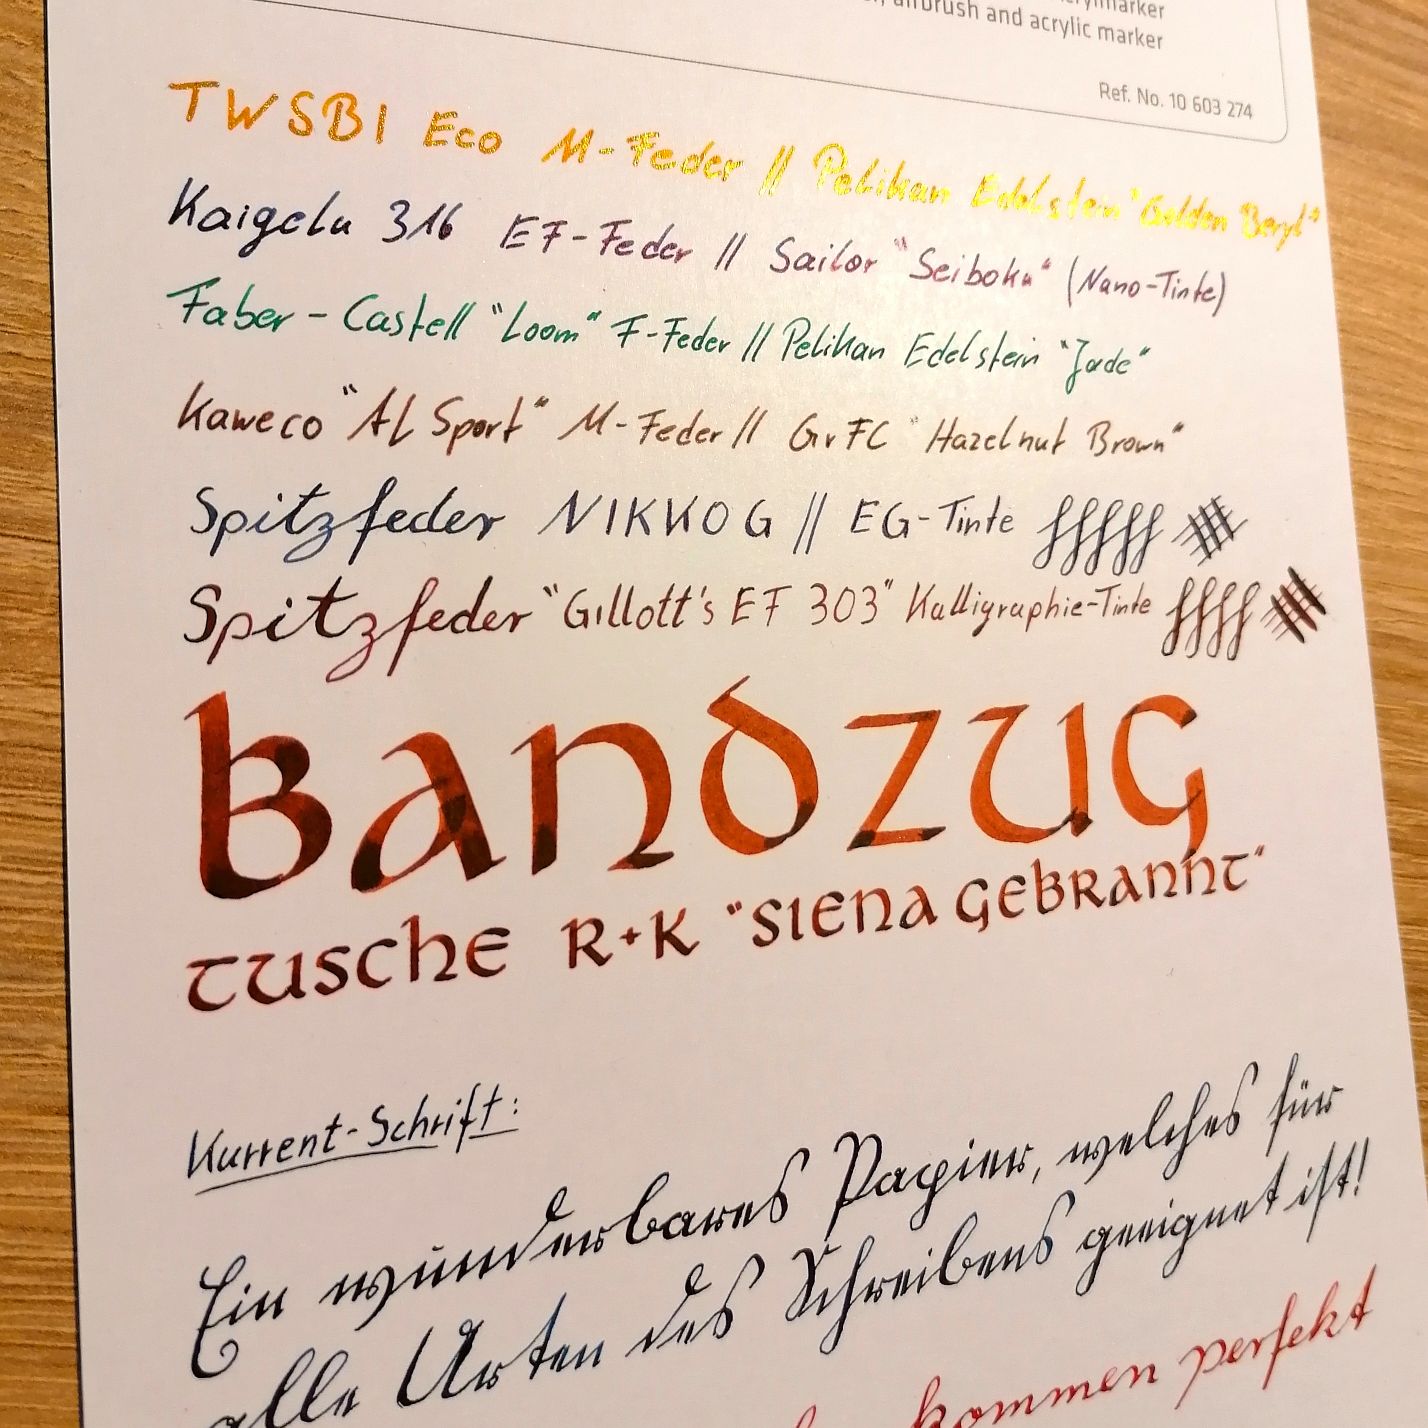 airbrush and acrylic marker
Ref. No. 10 603 274
TWSBI Eco M-Feder // Pelikan Edelstein "Golden Beryl"
Kaigelu 316 EF-Feder // Sailor "Seiboku" (Nano-Tinte)
Faber-Castell "Loom" F-Feder // Pelikan Edelstein "Jade"
Kaweco "AL Sport" M-Feder // GvFC "Hazelnut Brown"
Spitzfeder NIKKO G // EG-Tinte
Spitzfeder "Gillott's EF 303" Kalligraphie-Tinte
Bandzug
Tusche R+K "Siena gebrannt"
Kurrent-Schrift:
Ein wunderbares Papier, welches für
alle Arten des Schreibens geeignet ist!
kommen perfekt